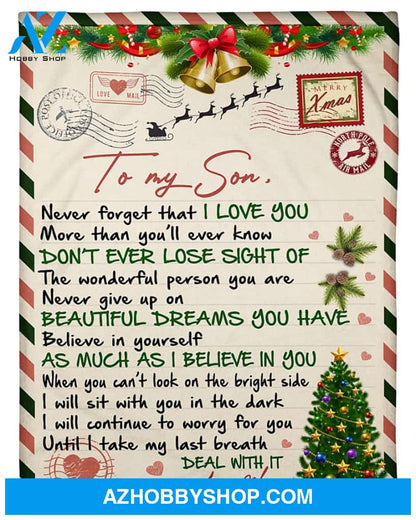 AZ
HOBBY SHOP
LOVE MAIL
POST OFFICE
MERRY
Xmas
NORTH POLE
AIR MAIL
To my Son,
Never forget that I LOVE YOU
More than you'll ever know
DON'T EVER LOSE SIGHT OF
The wonderful person you are
Never give up on
BEAUTIFUL DREAMS YOU HAVE
Believe in yourself
AS MUCH AS I BELIEVE IN YOU
When you can't look on the bright side
I will sit with you in the dark
I will continue to worry for you
Until I take my last breath
DEAL WITH IT
AZHOBBYSHOP.COM